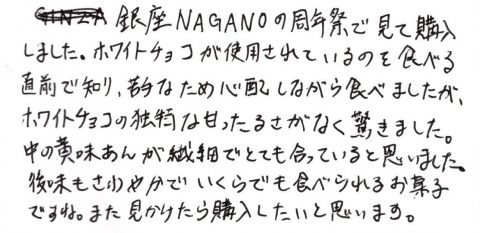 銀座NAGANOの周年祭で見て購入
しました。ホワイトチョコが使用されているのを食べる
直前で知り、苦手なため心配しながら食べましたが、
ホワイトチョコの独特な甘ったるさがなく驚きました。
中の黄味あんが繊細でとても合っていると思いました。
後味もさわやかでいくらでも食べられるお菓子
ですね。また見かけたら購入したいと思います。